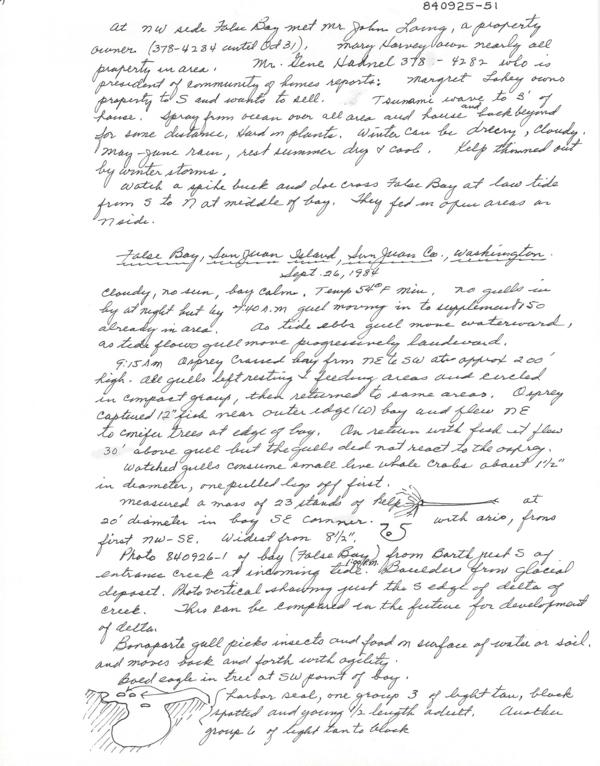 840925-51
At NW side False Bay met Mr. John Laing, a property
owner (378-4284 until Oct 31). Mary Harvey own nearly all
property in area. Mr. Gene Hahnel 378-4282 who is
president of community of homes reports: Margret Lahey owns
property to S and wants to sell. Tsunami wave to 3' of
house. Spray from ocean over all area and house and back beyond
for some distance, hard on plants. Winter can be dreery, cloudy.
May-June rain, rest summer dry & cool. Kelp thinned out
by winter storms.
Watch a spike buck and doe cross False Bay at low tide
from S to N at middle of bay. They fed in open areas on
N side.
False Bay, San Juan Island, San Juan Co., Washington.
Sept. 26, 1984
Cloudy, no sun, bay calm. Temp 54°F min. No gulls in
by at night but by 7:40 A.M gull moving in to supplement 150
already in area. As tide ebbs gull move waterward,
as tide flows gull move progressively landward.
9:15 AM Osprey crossed bay from NE to SW at approx 200'
high. All gulls left resting & feeding areas and circled
in compact group, then returned to same areas. Osprey
captured 12" fish near outer edge (W) bay and flew NE
to conifer trees at edge of bay. On return with fish it flew
30' above gull but the gulls did not react to the osprey.
Watched gulls consume small live whole crabs about 1½"
in diameter, one pulled legs off first.
Measured a mass of 23 stands of kelp at
20' diameter in bay SE corner. with
first NW-SE. Widest from 8½".
Photo 840926-1 of bay (False Bay) from Barth just S of
entrance creek at incoming tide. Boulders from glacial
deposit. Photo vertical showing just the S edge of delta of
creek. This can be compared in the future for development
of delta.
Bonaparte gull picks insects and food on surface of water or soil.
and moves back and forth with agility.
Baed eagle in tree at SW point of bay.
Harbor seal, one group 3 of light tan, black
spotted and young ½ length adult. Another
group 6 of light tan to black